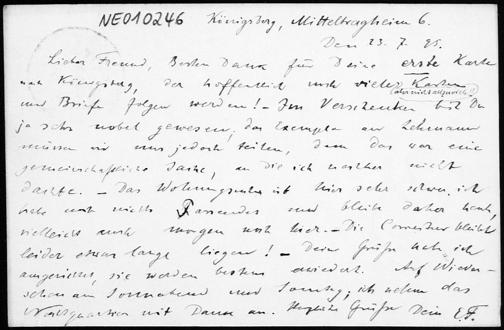 NE010246 Königsberg, Mitteltragheim 6.
Den 23. 7. 95.
Lieber Freund, Besten Dank für Deine erste Karte
nach Königsberg, der hoffentlich noch viele Karten
(aber nicht allzuviele!)
und Briefe folgen werden! – Im Verschenken bist Du
ja sehr nobel gewesen; das Exemplar an Lehmann
müssen wir uns jedoch teilen, denn das war eine
gemeinschaftliche Sache, an die ich nachher nicht
dachte. – Das Wohnungssuchen ist hier sehr schwer, ich
habe noch nichts Passendes und bleibe daher heute,
vielleicht auch morgen noch hier. – Die bleibt
leider etwas lange liegen! – Deine Grüße habe ich
ausgerichtet, sie werden bestens erwidert. Auf Wieder-
sehen am Sonnabend und Sonntag; ich nehme das
Nachtquartier mit Dank an. Herzliche Grüße Dein E.F.